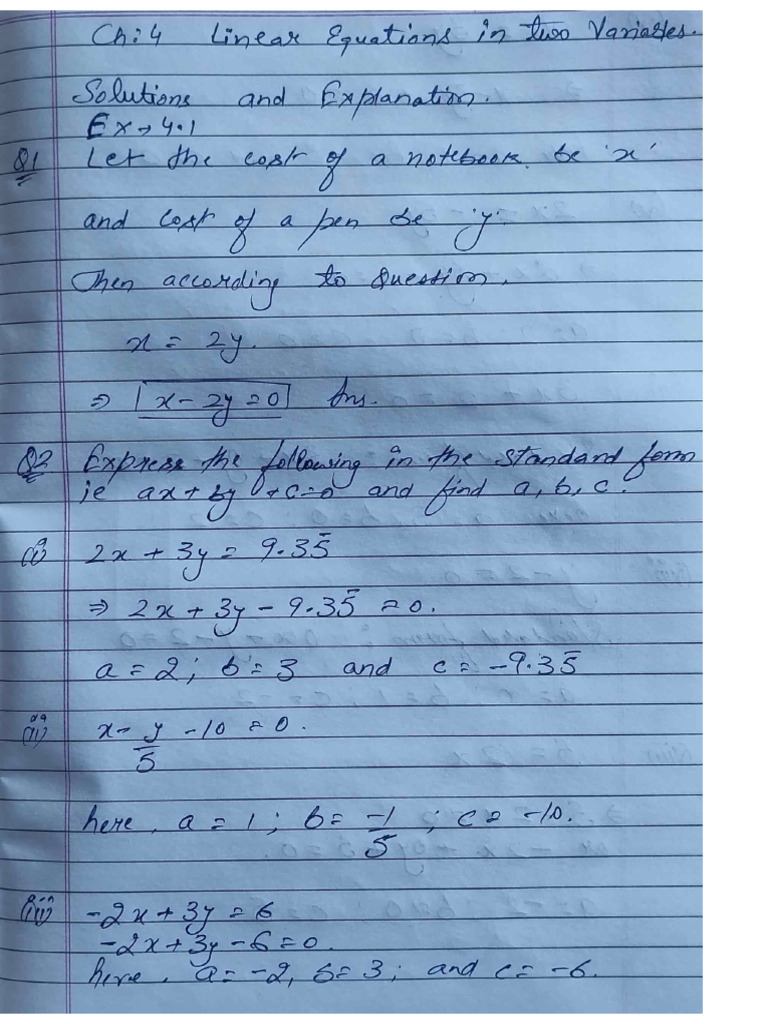 Ch:4 Linear Equations in two Variables.
Solutions and Explanation.
Ex→4.1
Q1 Let the cost of a notebook be 'x'
and cost of a pen be 'y'
Then according to Question.
x = 2y.
⇒ x - 2y = 0 Ans.
Q2 Express the following in the standard form
ie ax + by + c = 0 and find a, b, c.
(i) 2x + 3y = 9.35̅
⇒ 2x + 3y - 9.35̅ = 0.
a = 2; b = 3 and c = -9.35̅
(ii) x - y/5 - 10 = 0.
here, a = 1; b = -1/5; c = -10.
(iii) -2x + 3y = 6
-2x + 3y - 6 = 0.
here, a = -2, b = 3; and c = -6.